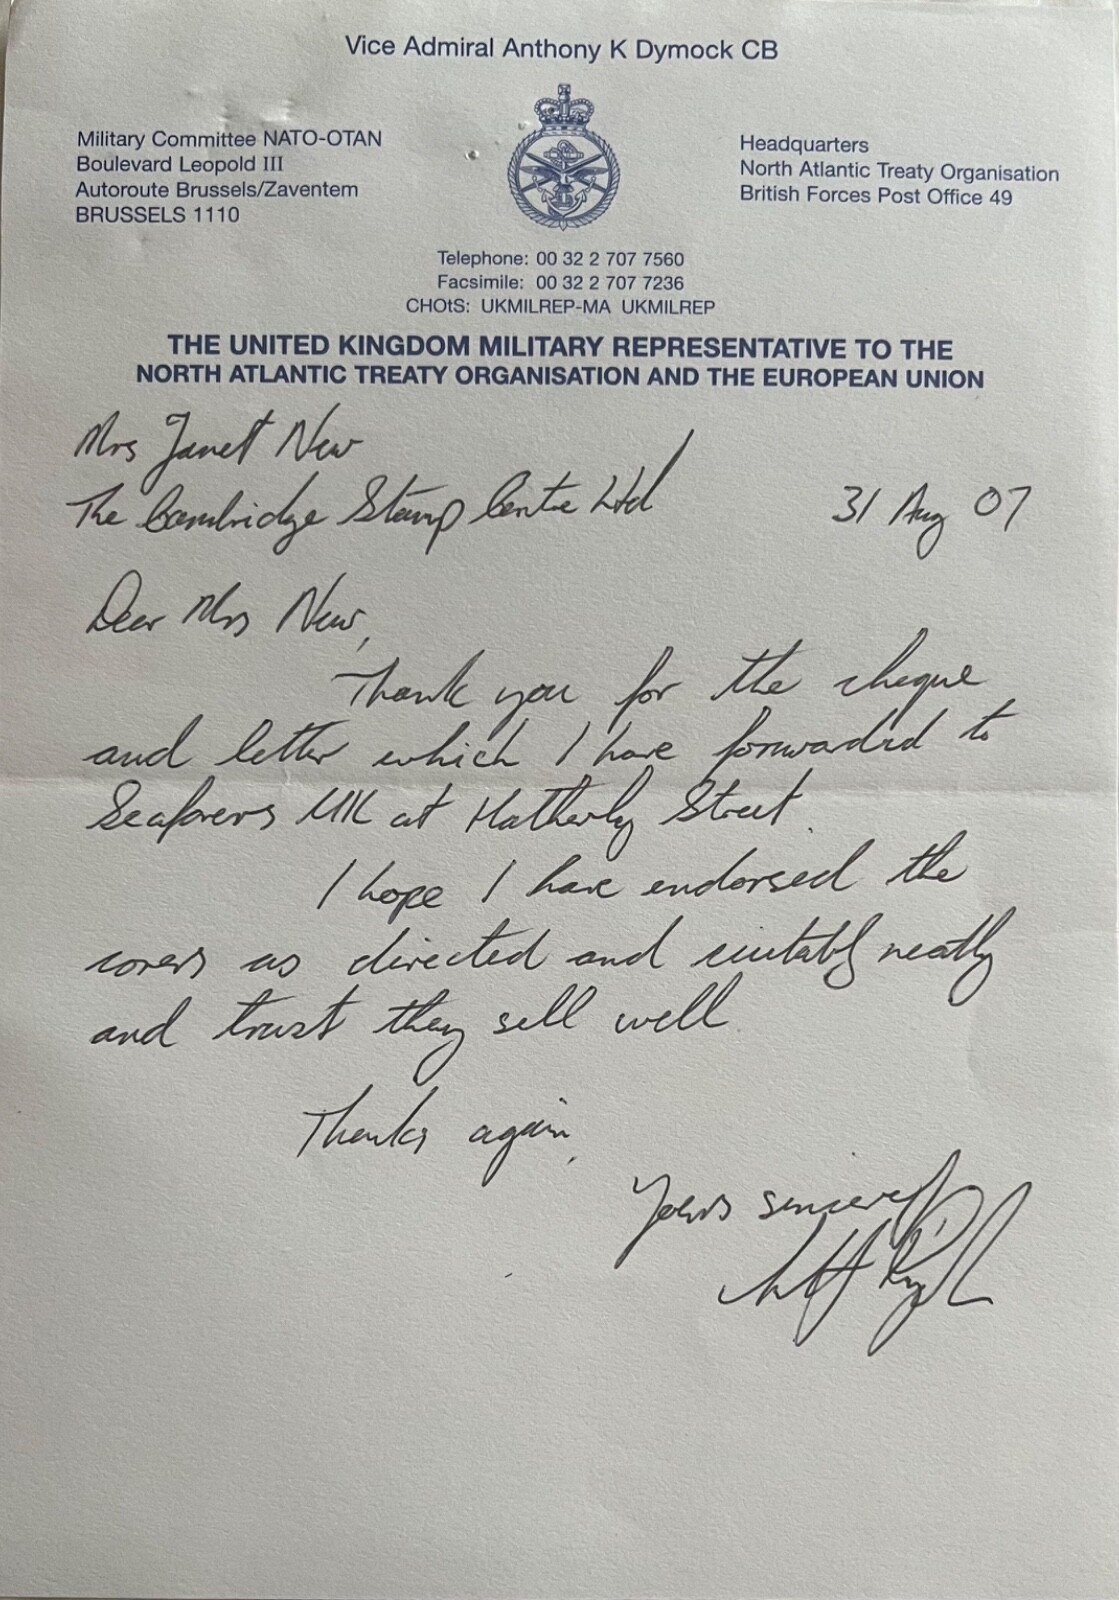 Vice Admiral Anthony K Dymock CB
Military Committee NATO-OTAN
Boulevard Leopold III
Autoroute Brussels/Zaventem
BRUSSELS 1110
Headquarters
North Atlantic Treaty Organisation
British Forces Post Office 49
Telephone: 00 32 2 707 7560
Facsimile: 00 32 2 707 7236
CHOtS: UKMILREP-MA UKMILREP
THE UNITED KINGDOM MILITARY REPRESENTATIVE TO THE
NORTH ATLANTIC TREATY ORGANISATION AND THE EUROPEAN UNION
Mrs Janet New
The Cambridge Stamp Centre Ltd
31 Aug 07
Dear Mrs New,
Thank you for the cheque
and letter which I have forwarded to
Seafarers UK at Hatherly Street.
I hope I have endorsed the
covers as directed and suitably neatly
and trust they sell well
Thanks again,
Yours sincerely